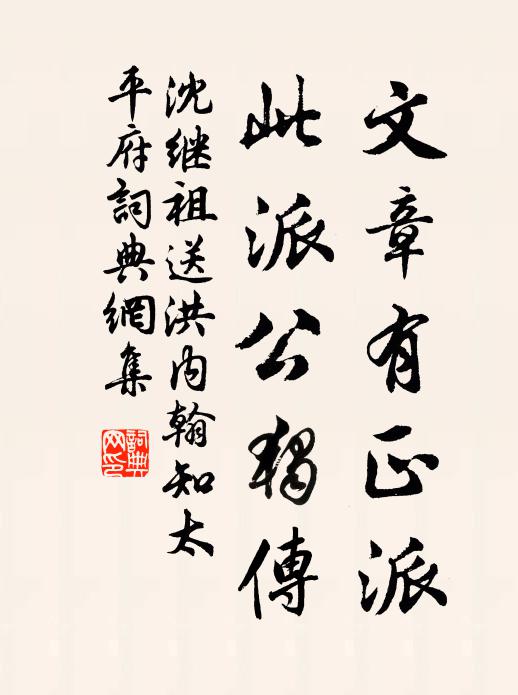 文章有正派
此派公獨傳
沈继祖送洪内翰知太
平府詞典網集
詞典
网印